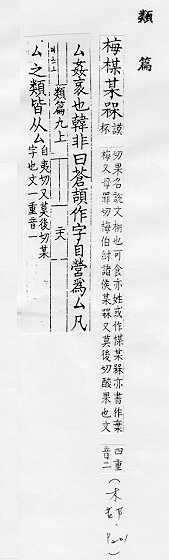 類篇
梅楳某槑 謨杯
切果名說文枏也可食亦姓或作楳某槑亦書作
梅又母罪切梅伯紂諸侯某槑又莫後切酸果也文
四重
音二
(木部.P.201)
厶姦衺也韓非曰蒼頡作字自營爲厶凡
類篇九上
厶之類皆从厶 自夷切又莫後切某
字也文一重音一